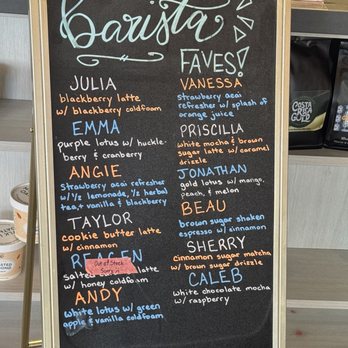 Barista
FAVES!
JULIA
blackberry latte
w/ blackberry coldfoam
EMMA
purple lotus w/ huckle-
berry & cranberry
ANGIE
Strawberry acai refresher
w/ 1/2 lemonade, 1/2 herbal
tea, + vanilla & blackberry
TAYLOR
cookie butter latte
w/ cinnamon
Out of Stock
salted
latte
w/ honey coldfoam
ANDY
white lotus w/ green
apple & vanilla coldfoam
VANESSA
strawberry acai
refresher w/ splash of
orange juice
PRISCILLA
white mocha & brown
sugar latte w/ caramel
drizzle
JONATHAN
gold lotus w/ mango,
peach, & melon
BEAU
brown sugar shaken
espresso w/ cinnamon
SHERRY
cinnamon sugar matcha
w/ brown sugar drizzle
CALEB
white chocolate mocha
w/ raspberry
COSTA
RICA
GOLD